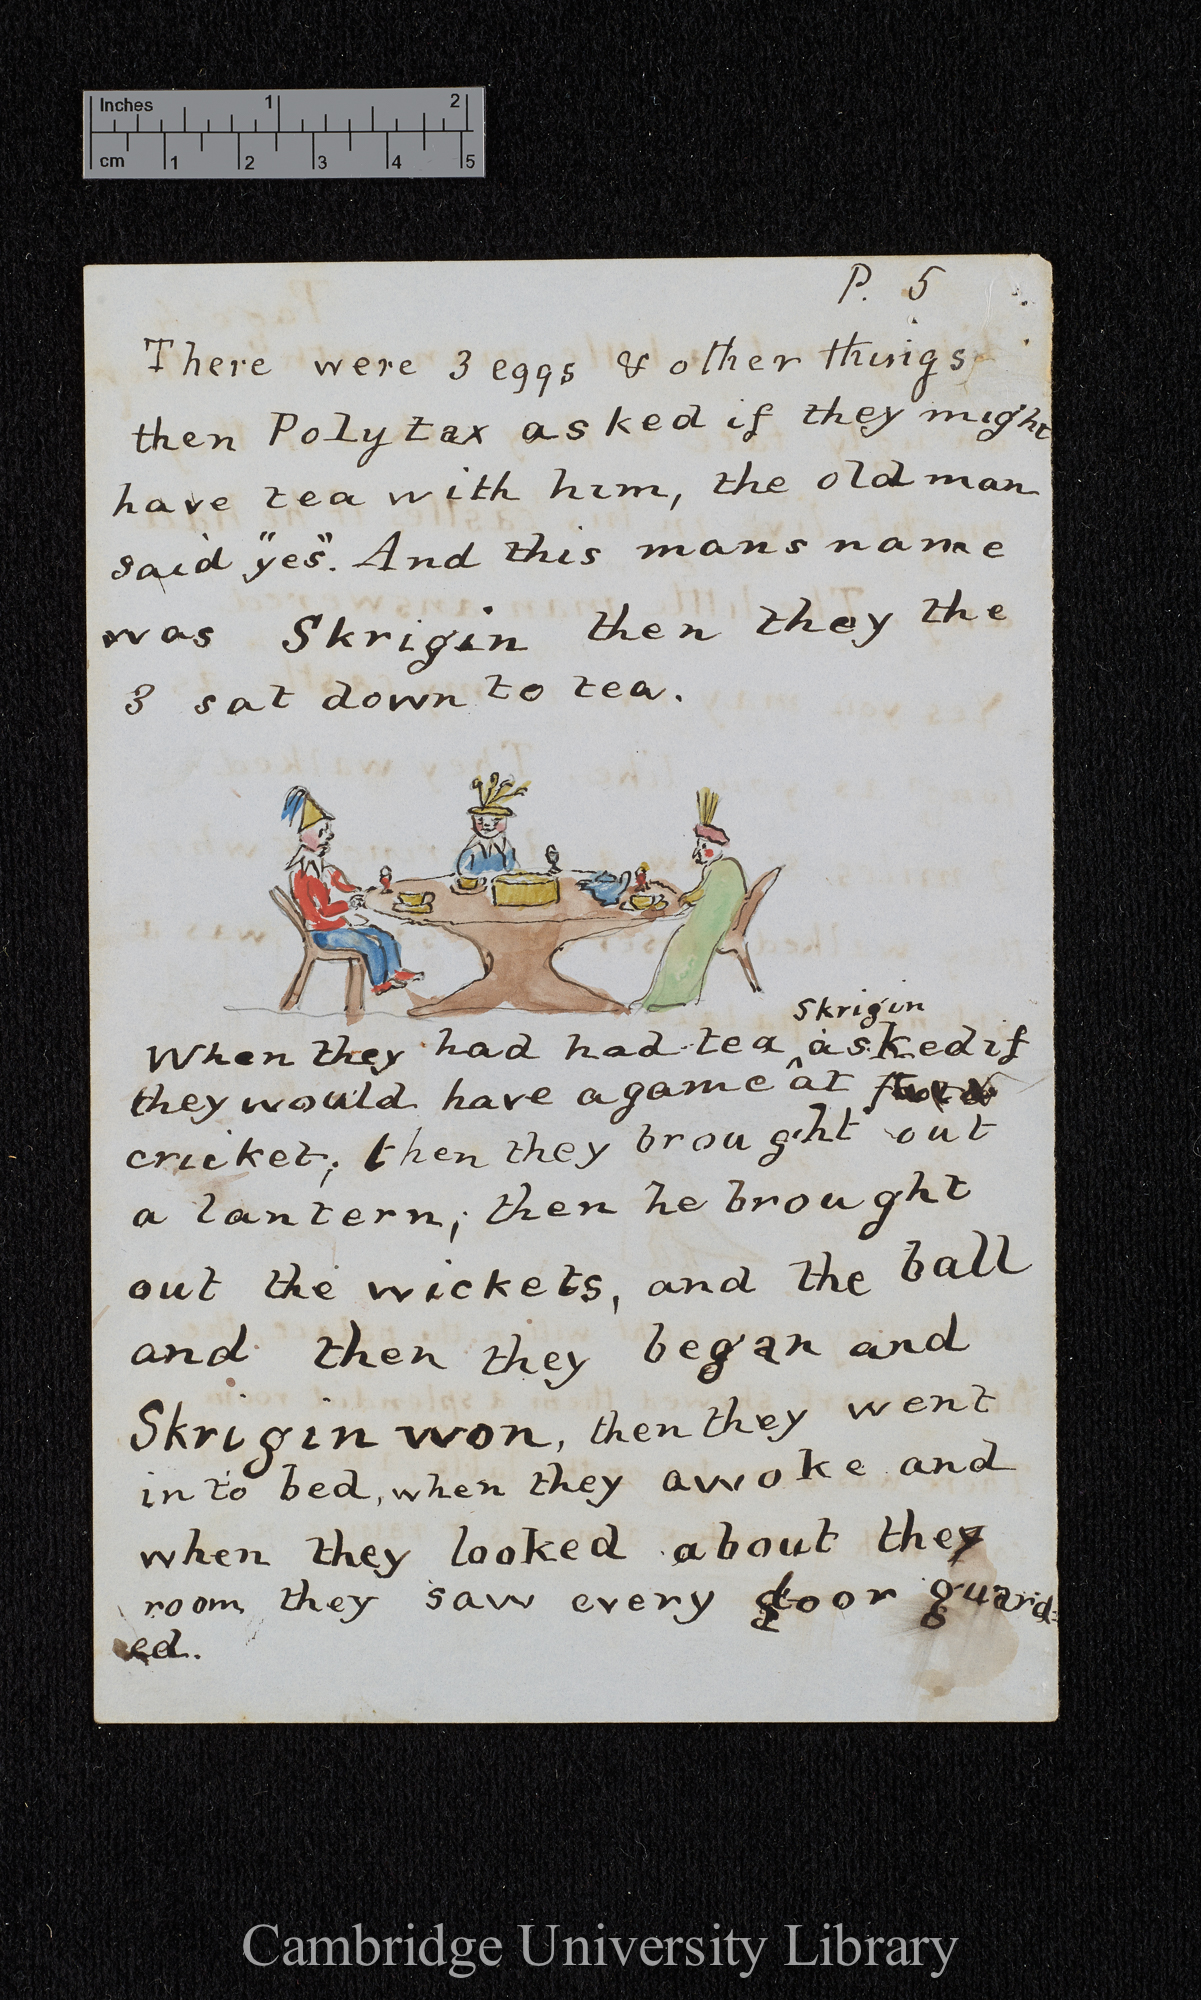 Inches 1 2
cm 1 2 3 4 5
P. 5
There were 3 eggs & other things
then Polytax asked if they might
have tea with him, the old man
said "yes". And this mans name
was Skrigin then they the
3 sat down to tea.
Skrigin
When they had had tea ^ asked if
they would have a game at
cricket; then they brought out
a lantern; then he brought
out the wickets, and the ball
and then they began and
Skrigin won, then they went
in to bed, when they awoke and
when they looked about they
room they saw every door guard=
ed.
Cambridge University Library